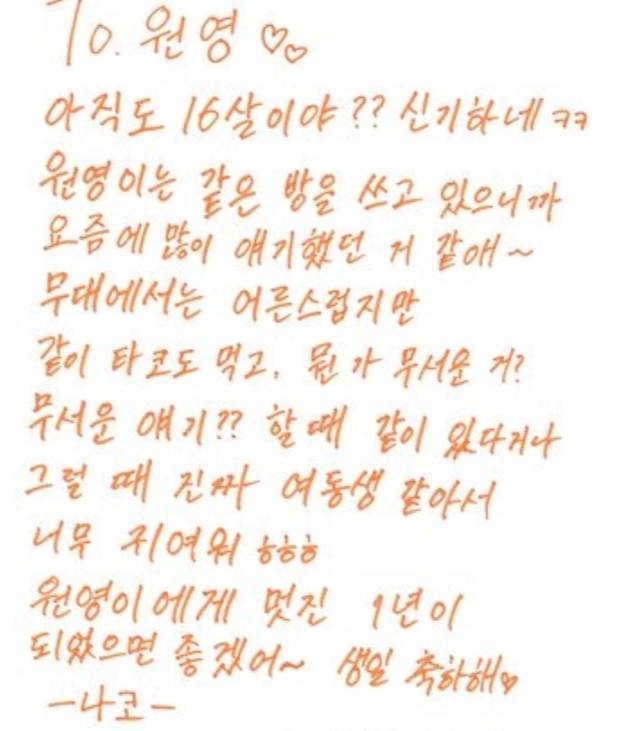 To. 원영 ♡♡
아직도 16살이야?? 신기하네 ㅋㅋ
원영이는 같은 방을 쓰고 있으니까
요즘에 많이 얘기했던 거 같애~
무대에서는 어른스럽지만
같이 타코도 먹고, 뭔가 무서운 거?
무서운 얘기?? 할 때 같이 있다거나
그럴 때 진짜 여동생 같아서
너무 귀여워 ㅎㅎㅎ
원영이에게 멋진 1년이
되었으면 좋겠어~ 생일 축하해♡
-나코-